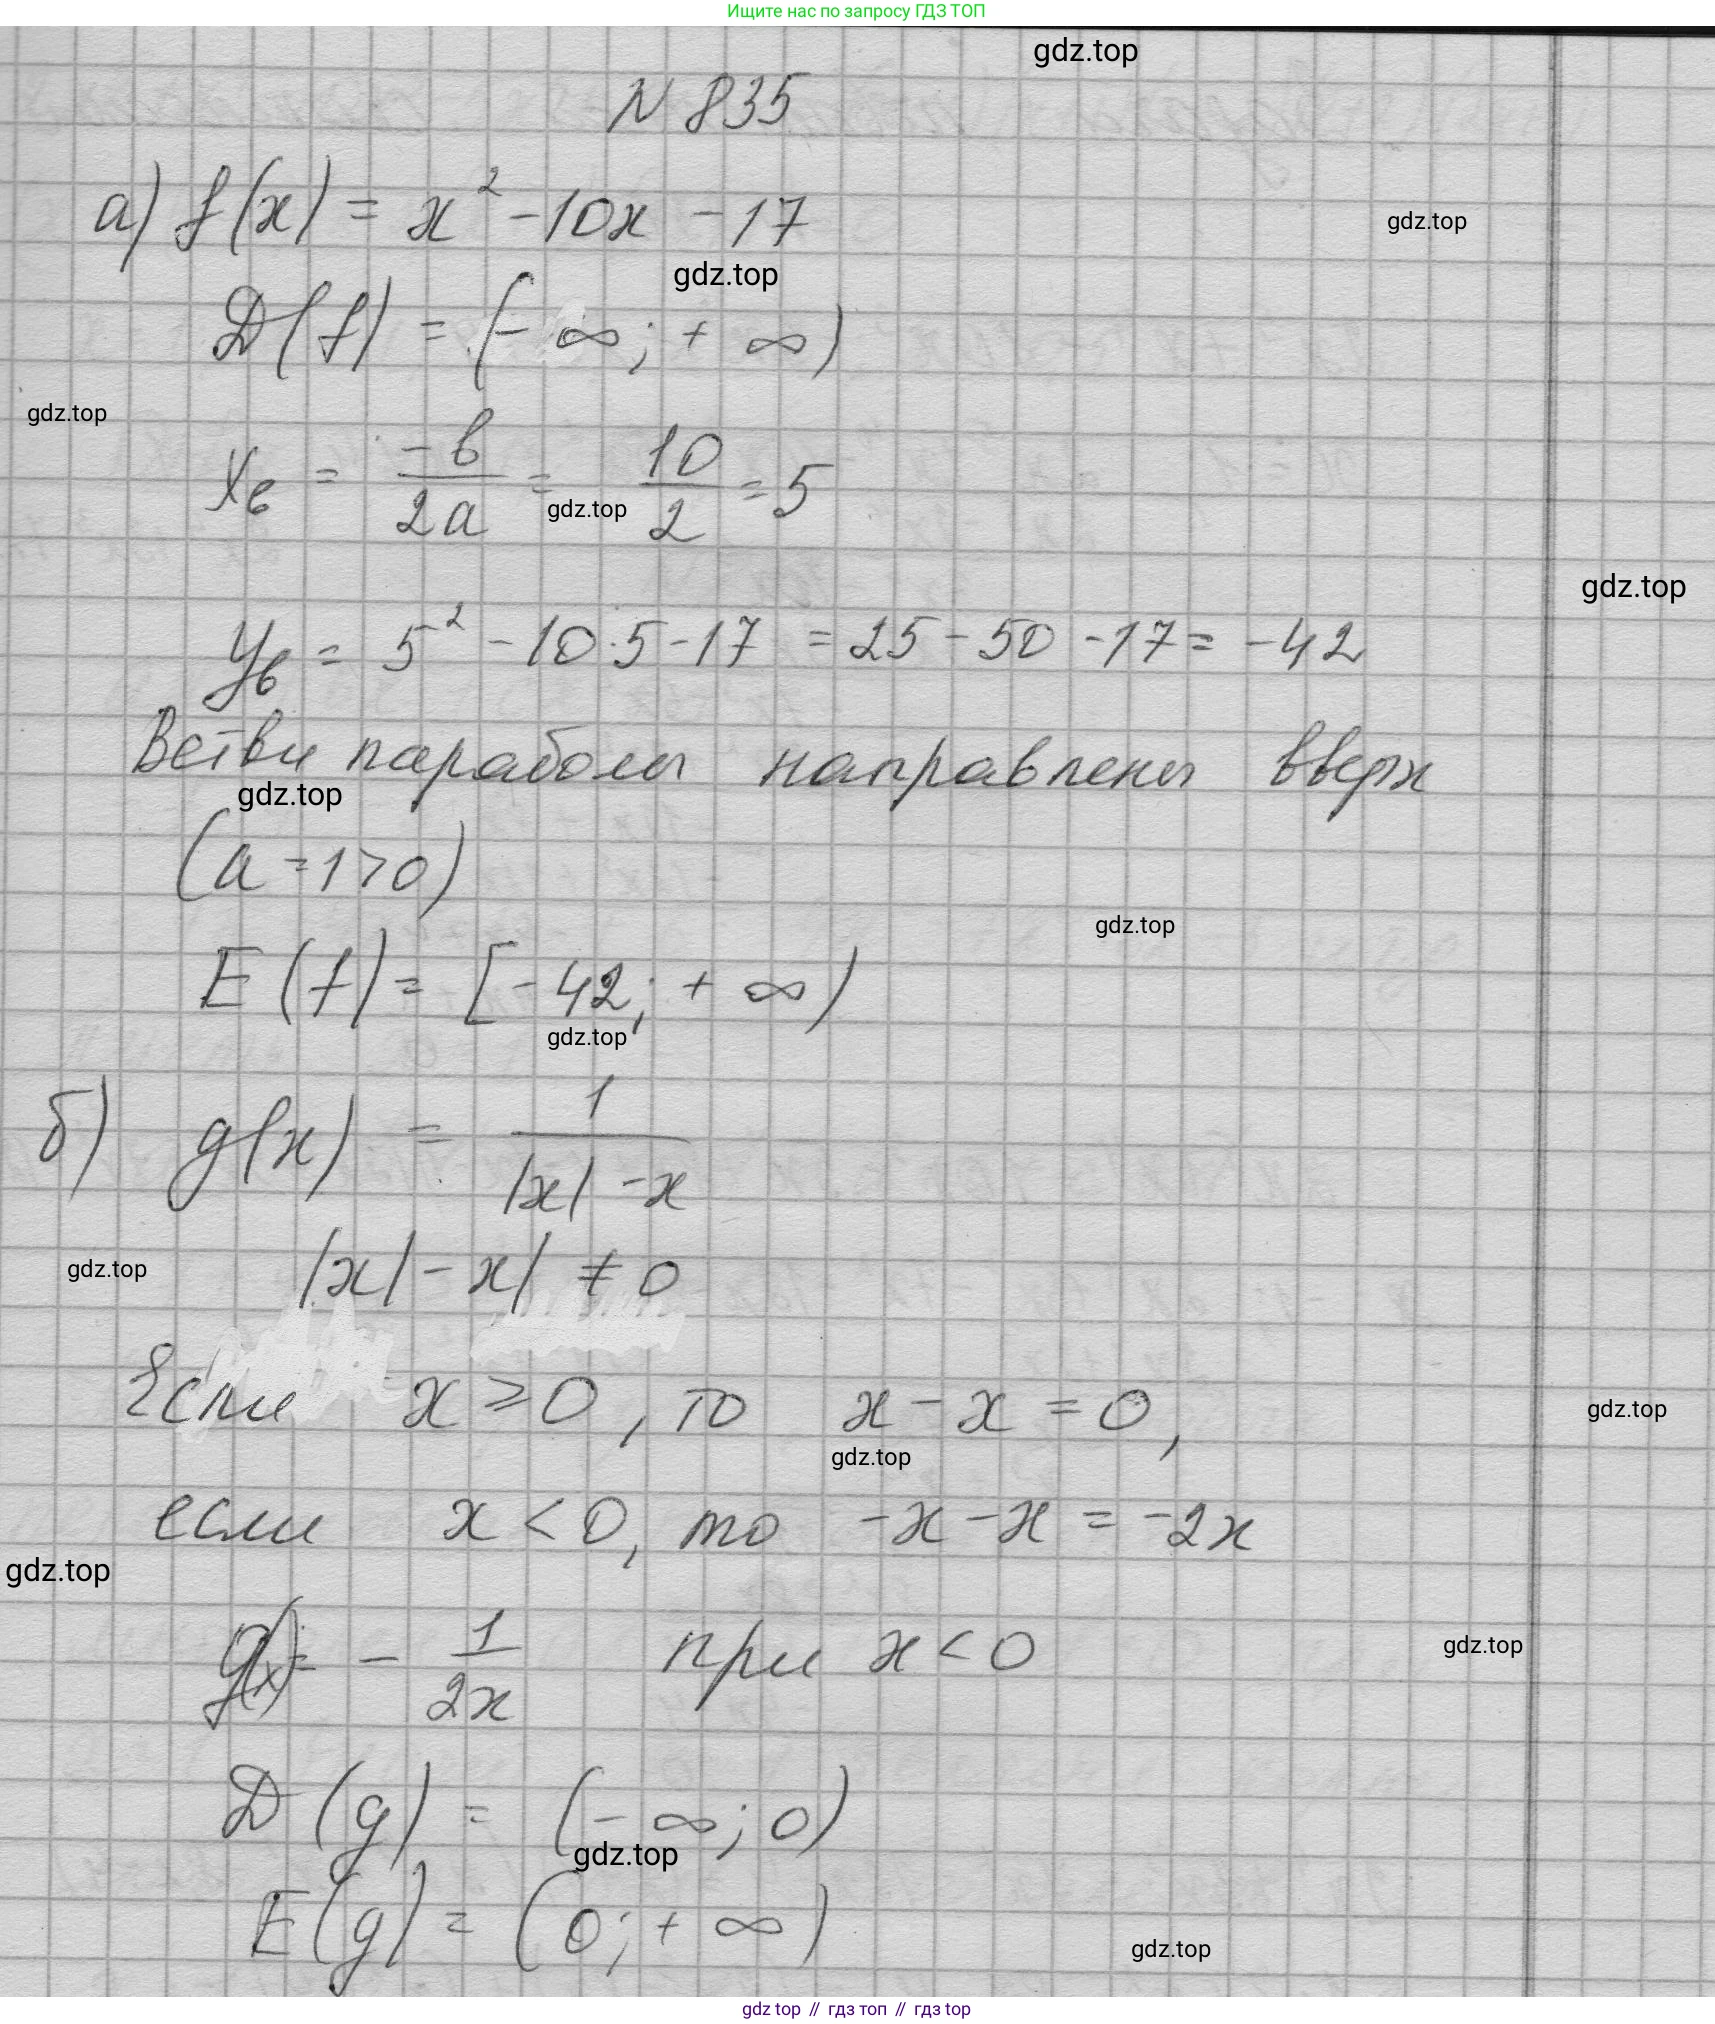 Ищите нас по запросу ГДЗ ТОП
gdz.top
N 835
а) f(x) = x² - 10x - 17
gdz.top
gdz.top
D(f) = (-∞; +∞)
gdz.top
x_в = -b/2a = 10/2 = 5
gdz.top
gdz.top
y_в = 5² - 10·5 - 17 = 25 - 50 - 17 = -42
Ветви параболы направлены вверх
gdz.top
(a = 1 > 0)
gdz.top
E(f) = [-42; +∞)
gdz.top
б) g(x) = 1/(|x| - x)
gdz.top
|x| - x| ≠ 0
Если x ≥ 0, то x - x = 0,
gdz.top
gdz.top
если x < 0, то -x - x = -2x
gdz.top
g(x) = - 1/2x при x < 0
gdz.top
D(g) = (-∞; 0)
gdz.top
E(g) = (0; +∞)
gdz.top
gdz top // гдз топ // gdz top